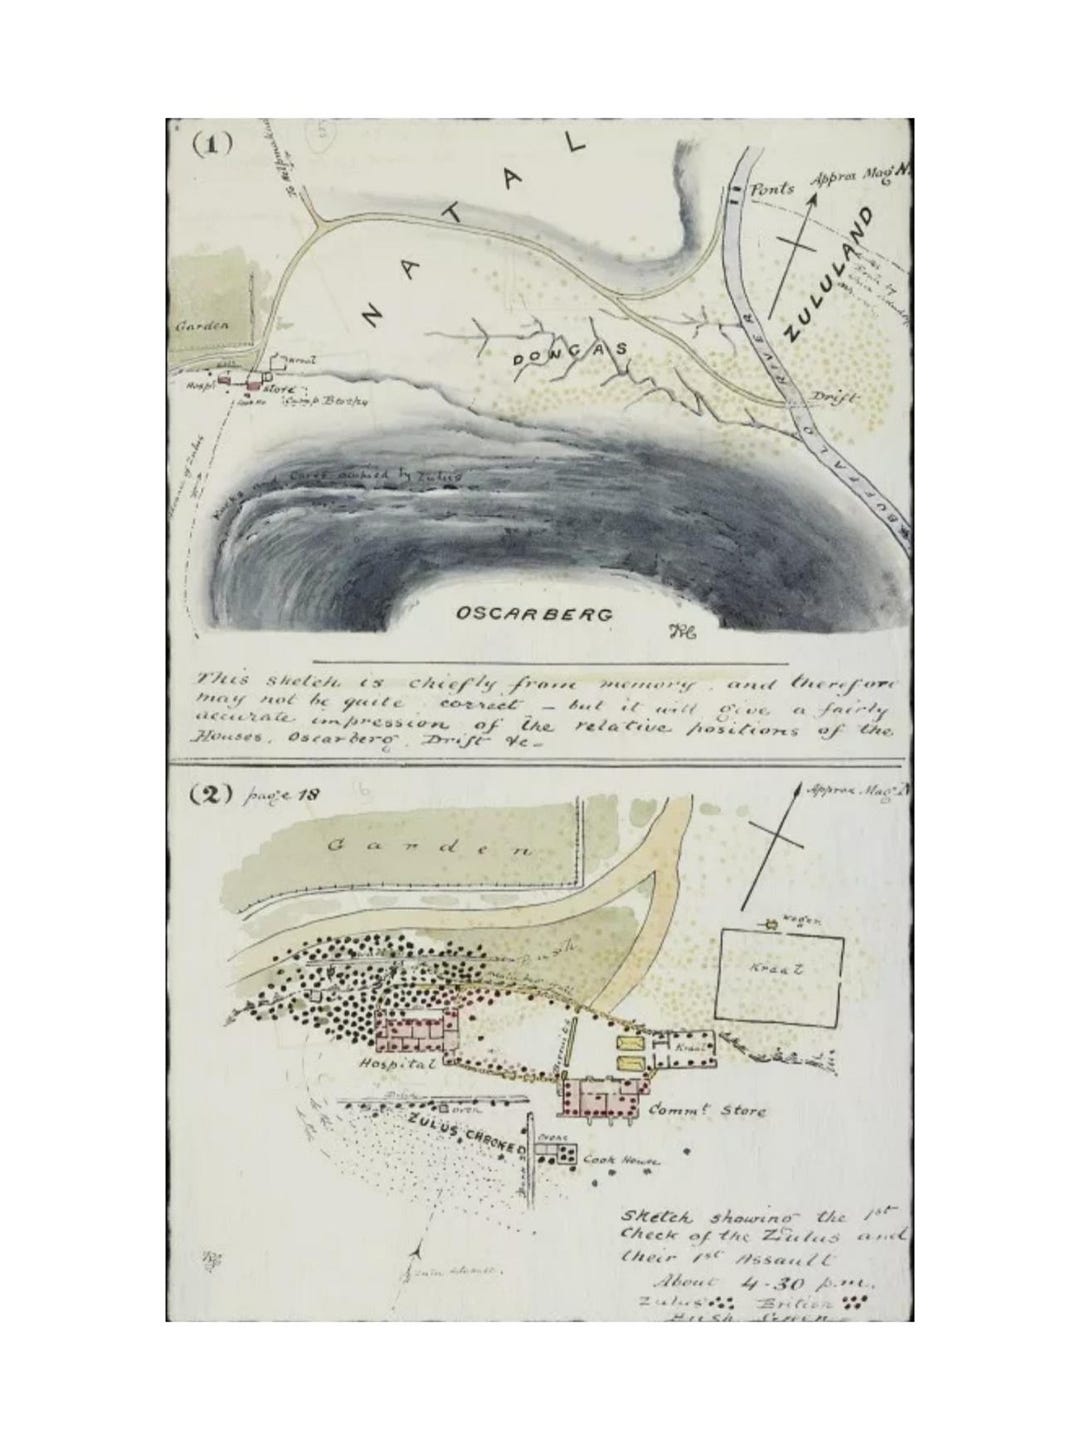 (1)
To Helpmakaar
N A T A L
Ponts
Approx Mag N.
ZULULAND
Garden
Kraal
Hospl
Store
Camp B Co 2/24
DONGAS
Drift
BUFFALO RIVER
Advance of Zulus
Rocks and Caves occupied by Zulus
OSCARBERG
This sketch is chiefly from memory, and therefore
may not be quite correct — but it will give a fairly
accurate impression of the relative positions of the
Houses, Oscarberg, Drift &c —
(2) page 18
Approx Mag N
Garden
Wagon
Kraal
Bush
Biscuits
Kraal
Hospital
Commt. Store
Ditch
Oven
ZULUS CHECKED
Ovens
Cook House
Bank
Zulu advance.
Sketch showing the 1st
Check of the Zulus and
their 1st Assault
About 4-30 p.m.
Zulus British
Bush Green